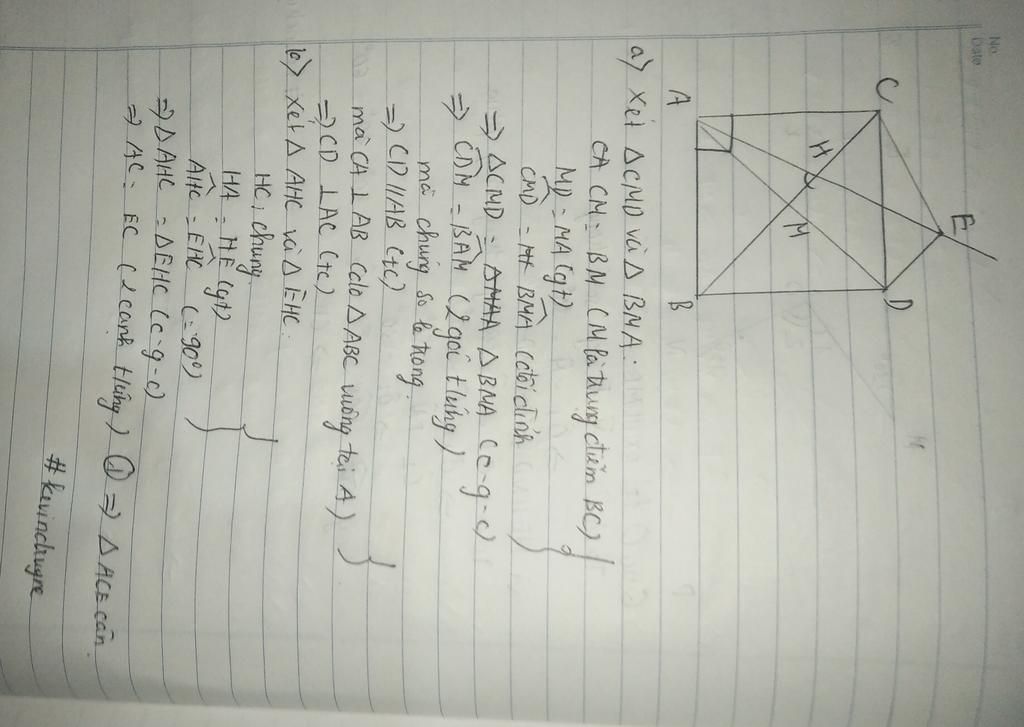 No
Date
C
E
H
M
D
A
B
a) Xét ΔCMD và ΔBMA:
CM = BM (M là trung điểm BC)
MD = MA (gt)
CMD = BMA (đối đỉnh
⇒ ΔCMD = ΔBMA (c-g-c)
⇒ CDM = BAM (2 góc t/ứng)
mà chúng so le trong
⇒ CD//AB (t/c)
mà CA ⊥ AB (do ΔABC vuông tại A)
⇒ CD ⊥ AC (t/c)
b) Xét ΔAHC và ΔEHC:
HC: chung
HA = HE (gt)
AHC = EHC (=90°)
⇒ ΔAHC = ΔEHC (c-g-c)
⇒ AC = EC (2 cạnh t/ứng) ① ⇒ ΔACE cân.